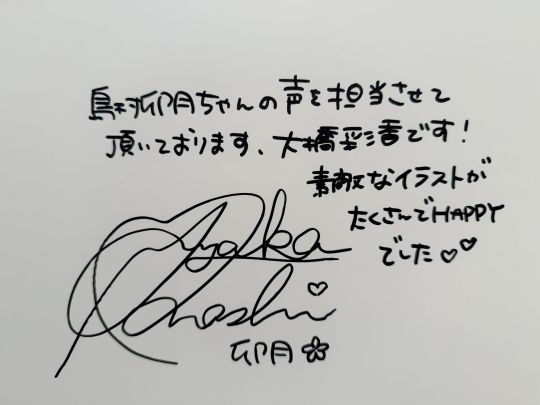 島村卯月ちゃんの声を担当させて
頂いております、大橋彩香です!
素敵なイラストが
たくさんでHAPPY
でした♡♡
Ayaka
Ohashi♡
卯月